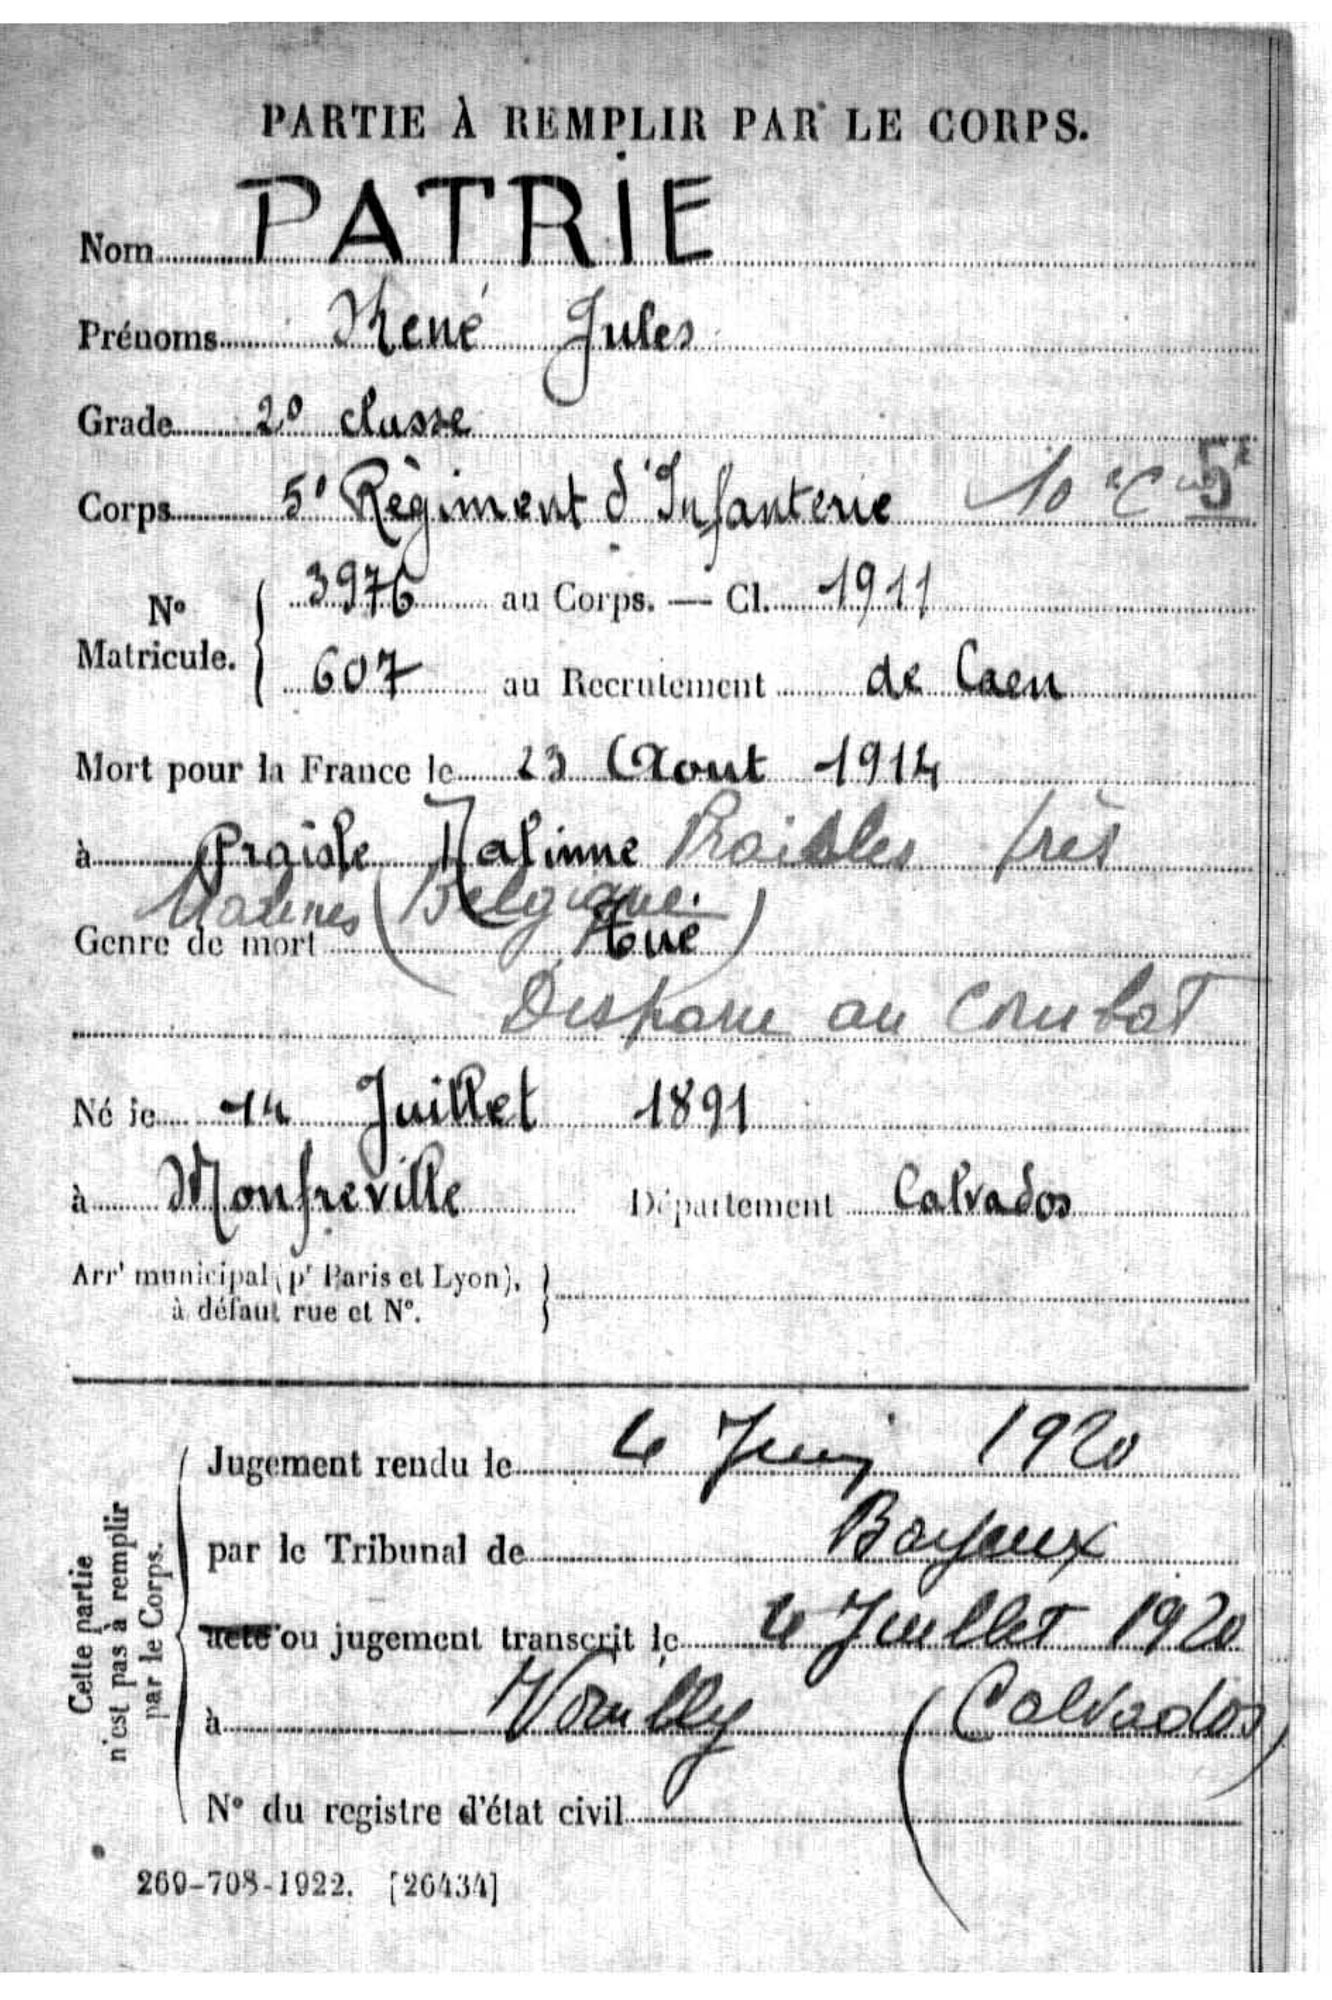 PARTIE À REMPLIR PAR LE CORPS.
Nom PATRIE
Prénoms René Jules
Grade 2e classe
Corps 5e Régiment d'Infanterie 10e Cie 5e
N° Matricule. 3976 au Corps. — Cl. 1911
607 au Recrutement de Caen
Mort pour la France le 23 Aout 1914
à Praisle Malinne Praisles près
Malines (Belgique)
Genre de mort Tué
Disparu au combat
Né le 14 Juillet 1891
à Monfreville Département Calvados
Arrt municipal (pr Paris et Lyon), à défaut rue et N°.
Cette partie n'est pas à remplir par le Corps.
Jugement rendu le 4 Juin 1920
par le Tribunal de Bayeux
acte ou jugement transcrit le 4 Juillet 1920
à Vouilly (Calvados)
N° du registre d'état civil
269-708-1922. [26434]